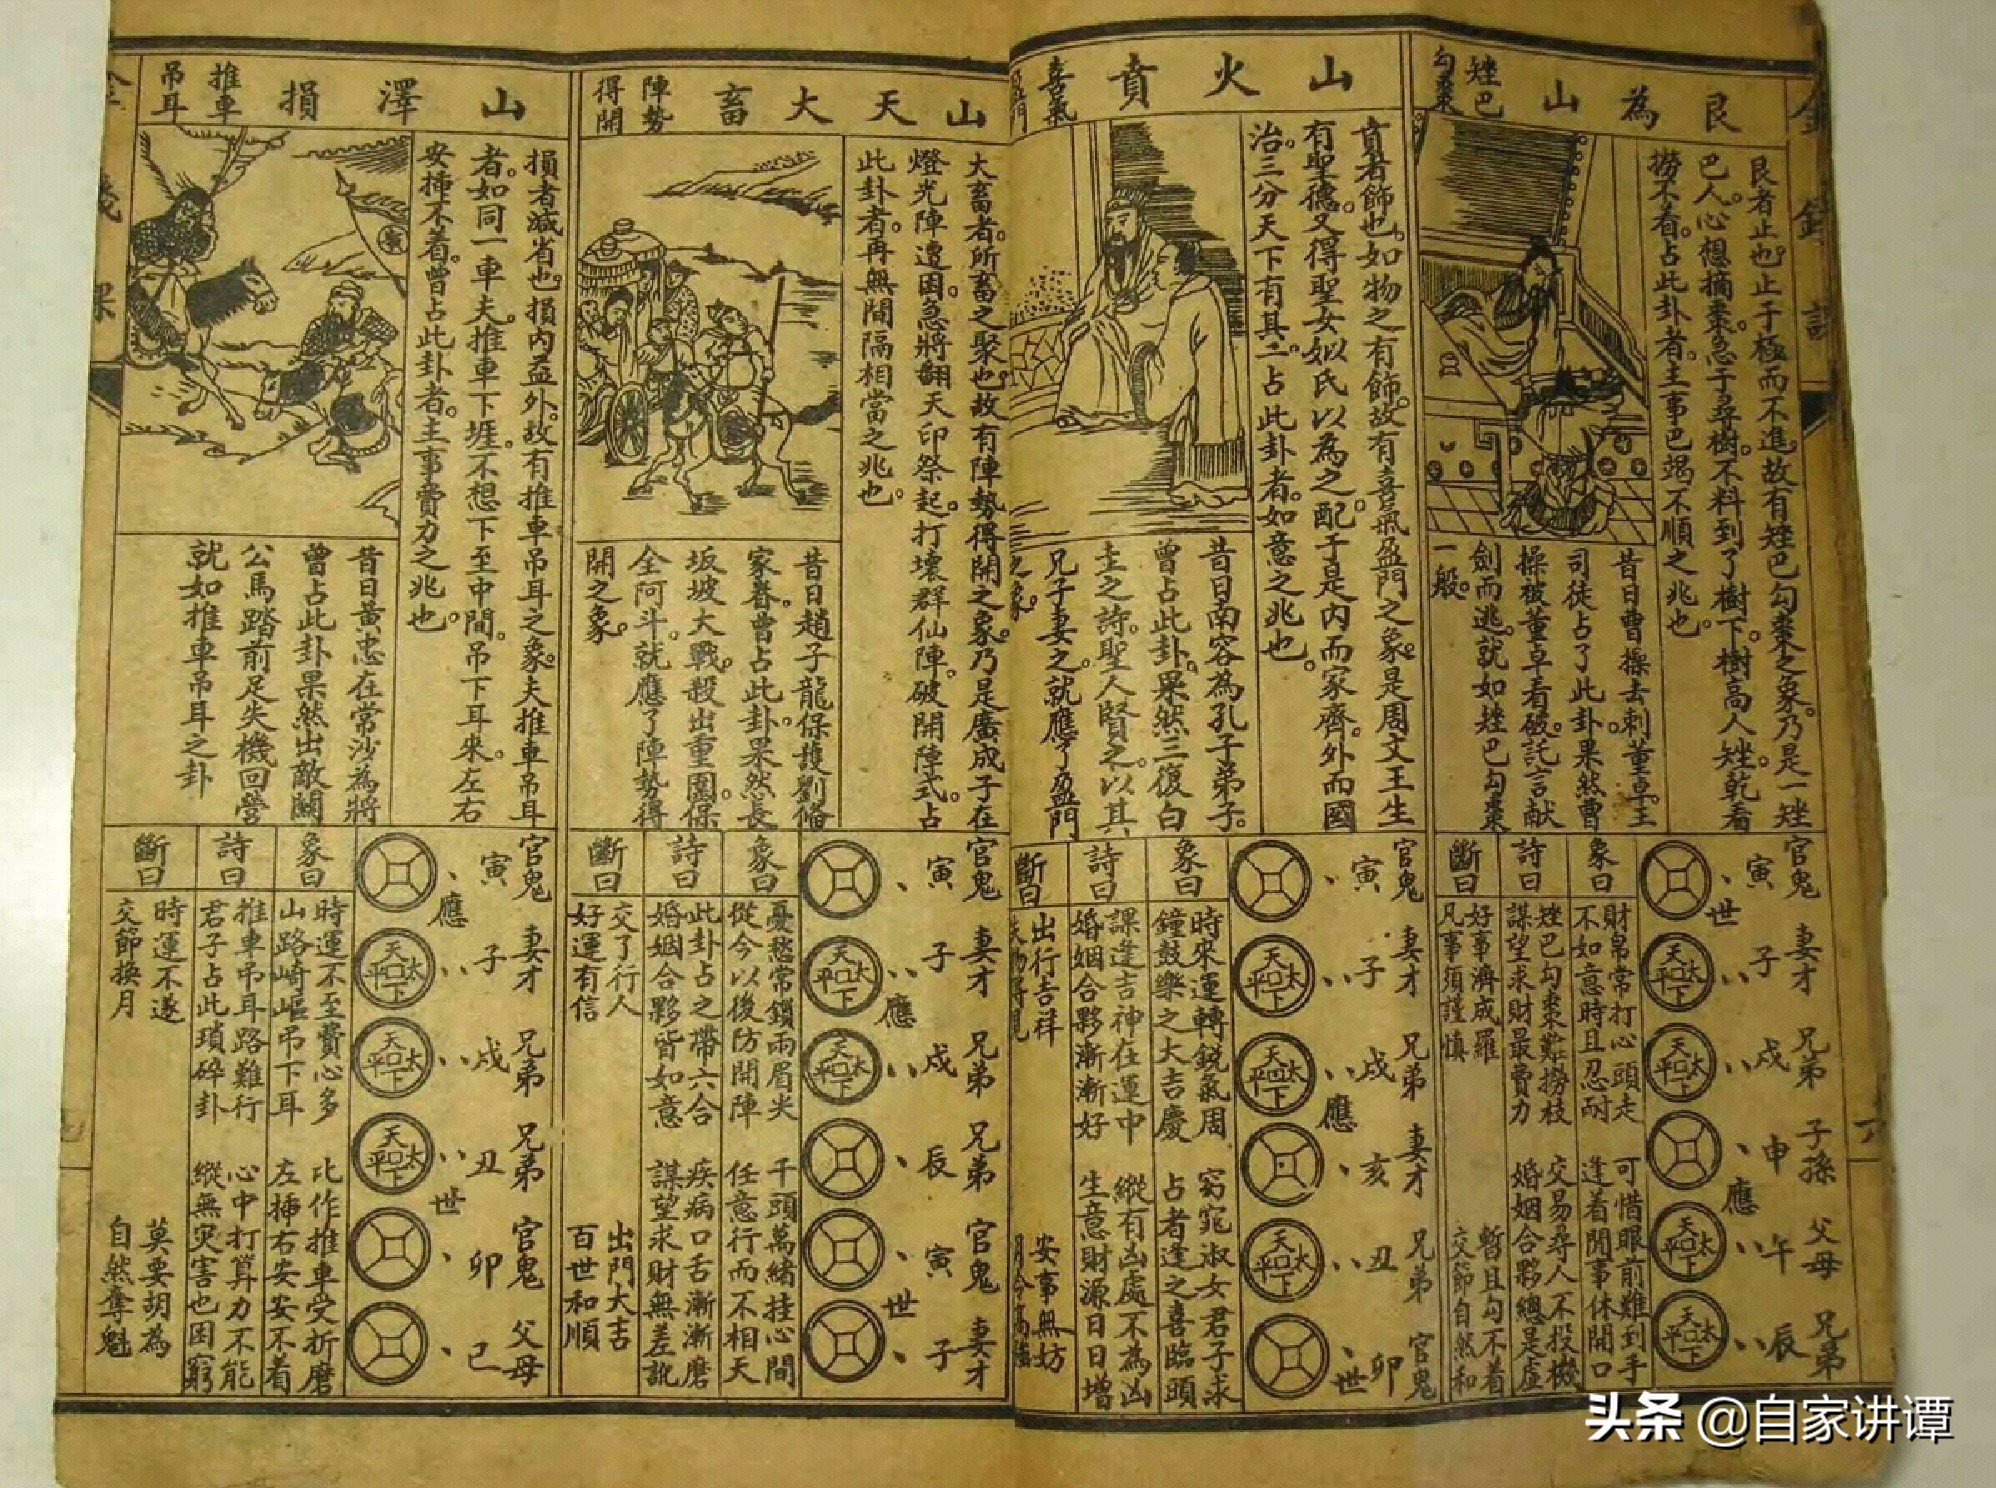 艮為山
矬巴
勾棗
艮者止也。止于極而不進。故有矬巴勾棗之象。乃是一矬
巴人。心想摘棗。忽于尋樹。不料到了樹下。樹高人矬。乾看
撈不着。占此卦者。主事巴竭不順之兆也。
昔日曹操去刺董卓。王
司徒占了此卦。果然曹
操被董卓看破。託言献
劍而逃。就如矬巴勾棗
一般。
官鬼 寅 世
妻才 子
兄弟 戌
子孫 申 應
父母 午
兄弟 辰
象曰
財帛常打心頭走 可惜眼前難到手
不如意時且忍耐 逢着閒事休開口
詩曰
矬巴勾棗難撈枝 交易尋人不投機
謀望求財最費力 婚姻合夥總是虛
斷曰
好事濟成羅 暫且勾不着
凡事須謹慎 交節自然和
山火賁
喜氣
盈門
賁者飾也。如物之有飾。故有喜氣盈門之象。是周文王生
有聖德。又得聖女姒氏以為之配。于是內而家齊。外而國
治。三分天下有其二。占此卦者。如意之兆也。
昔日南容為孔子弟子。
曾占此卦。果然三復白
圭之詩。聖人賢之。以其
兄子妻之。就應了盈門
之象。
官鬼 寅
妻才 子
兄弟 戌 應
妻才 亥
兄弟 丑
官鬼 卯 世
象曰
時來運轉銳氣周 窈窕淑女君子求
鐘鼓樂之大吉慶 占者逢之喜臨頭
詩曰
課逢吉神在運中 縱有凶處不為凶
婚姻合夥漸漸好 生意財源日日增
斷曰
出行吉祥 安事無妨
山天大畜
陣勢
得開
大畜者。所畜之聚也。故有陣勢得開之象。乃是廣成子在
燈光陣遭困。急將翻天印祭起。打壞群仙陣。破開陣式。占
此卦者。再無間隔相當之兆也。
昔日趙子龍保護劉備
家眷。曾占此卦。果然長
坂坡大戰。殺出重圍。保
全阿斗。就應了陣勢得
開之象。
官鬼 寅
妻才 子 應
兄弟 戌
兄弟 辰
官鬼 寅 世
妻才 子
象曰
憂愁常鎖兩眉尖 千頭萬緒挂心間
從今以後防開陣 任意行而不相天
詩曰
此卦占之帶六合 疾病口舌漸漸磨
婚姻合夥皆如意 謀望求財無差訛
斷曰
交了行人 出門大吉
好運有信 百世和順
山澤損
推車
吊耳
損者減省也。損內益外。故有推車吊耳之象。夫推車吊耳
者。如同一車夫。推車下堐。不想下至中間。吊下耳來。左右
安插不着。曾占此卦者。主事費力之兆也。
昔日黃忠在常沙為將
曾占此卦果然出敵關
公馬踏前足失機回營
就如推車吊耳之卦
官鬼 寅 應
妻才 子
兄弟 戌
兄弟 丑 世
官鬼 卯
父母 巳
象曰
時運不至費心多 比作推車受折磨
山路崎嶇吊下耳 左插右安安不着
詩曰
推車吊耳路難行 心中打算力不能
君子占此瑣碎卦 縱無灾害也困窮
斷曰
時運不遂 莫要胡為
交節換月 自然奪魁
头条 @自家讲谭